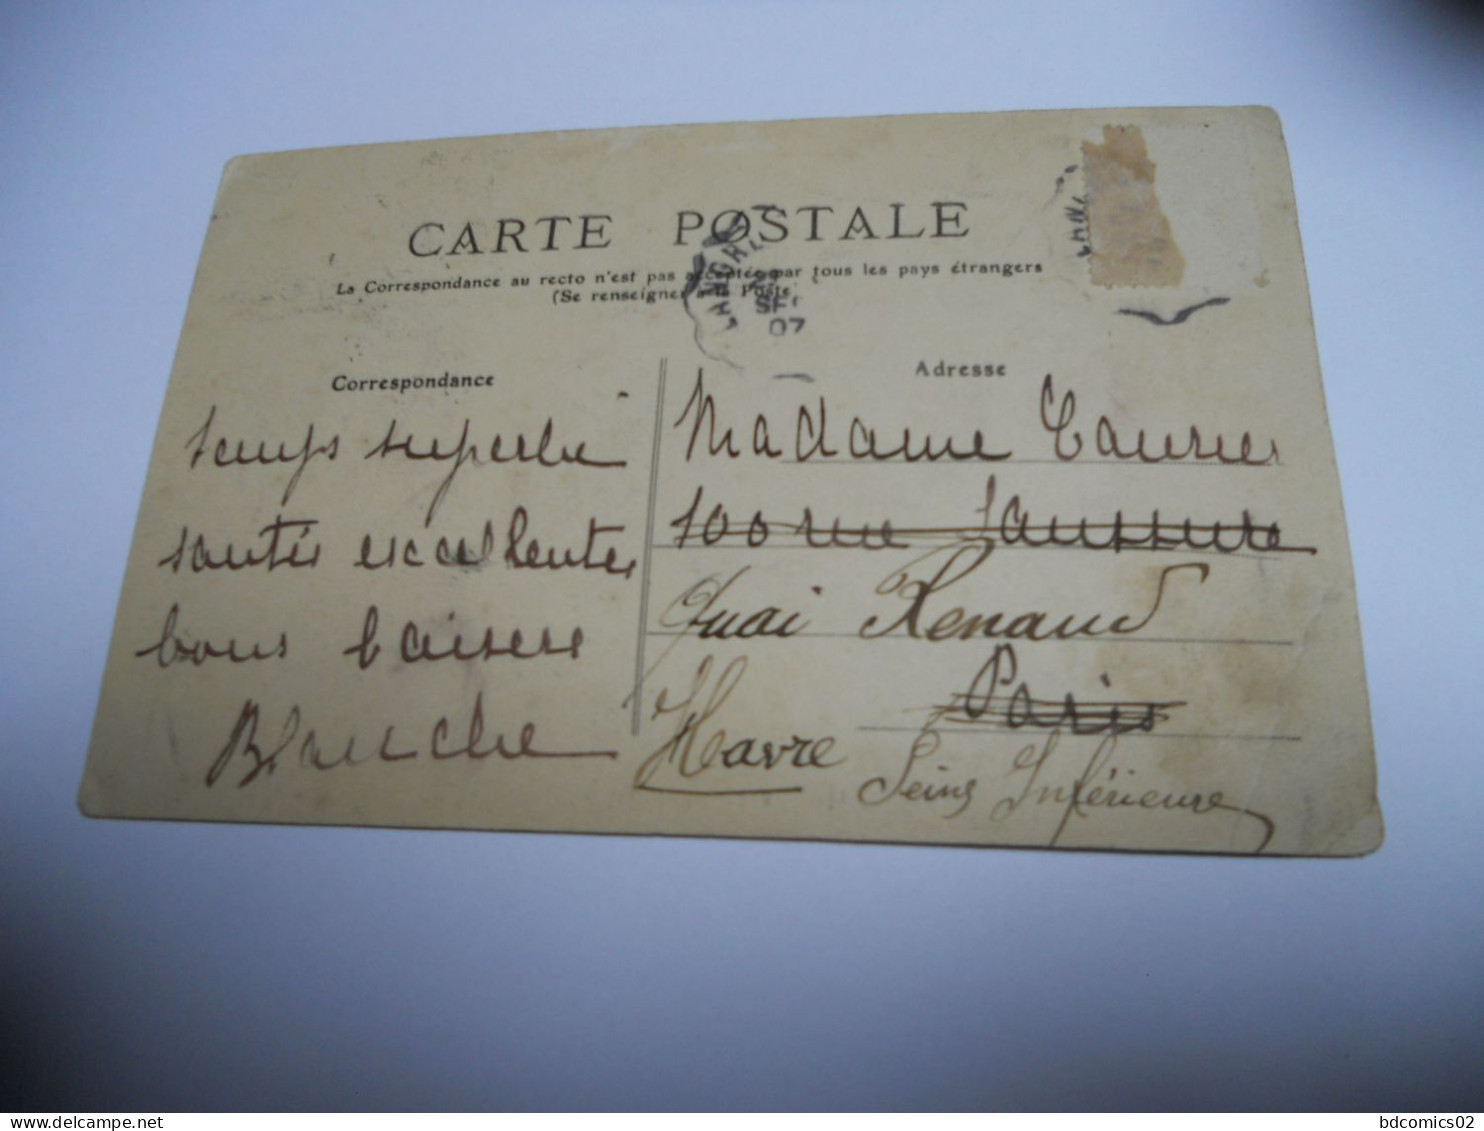 CARTE POSTALE
La Correspondance au recto n'est pas acceptée par tous les pays étrangers
(Se renseigner à la Poste
SEP
07
Correspondance
temps superbe
santés excellentes
bons baisers
Blanche
Adresse
Madame
100 rue Saussure
Quai Renaud
Paris
Havre
Seine Inférieure
bdcomics02